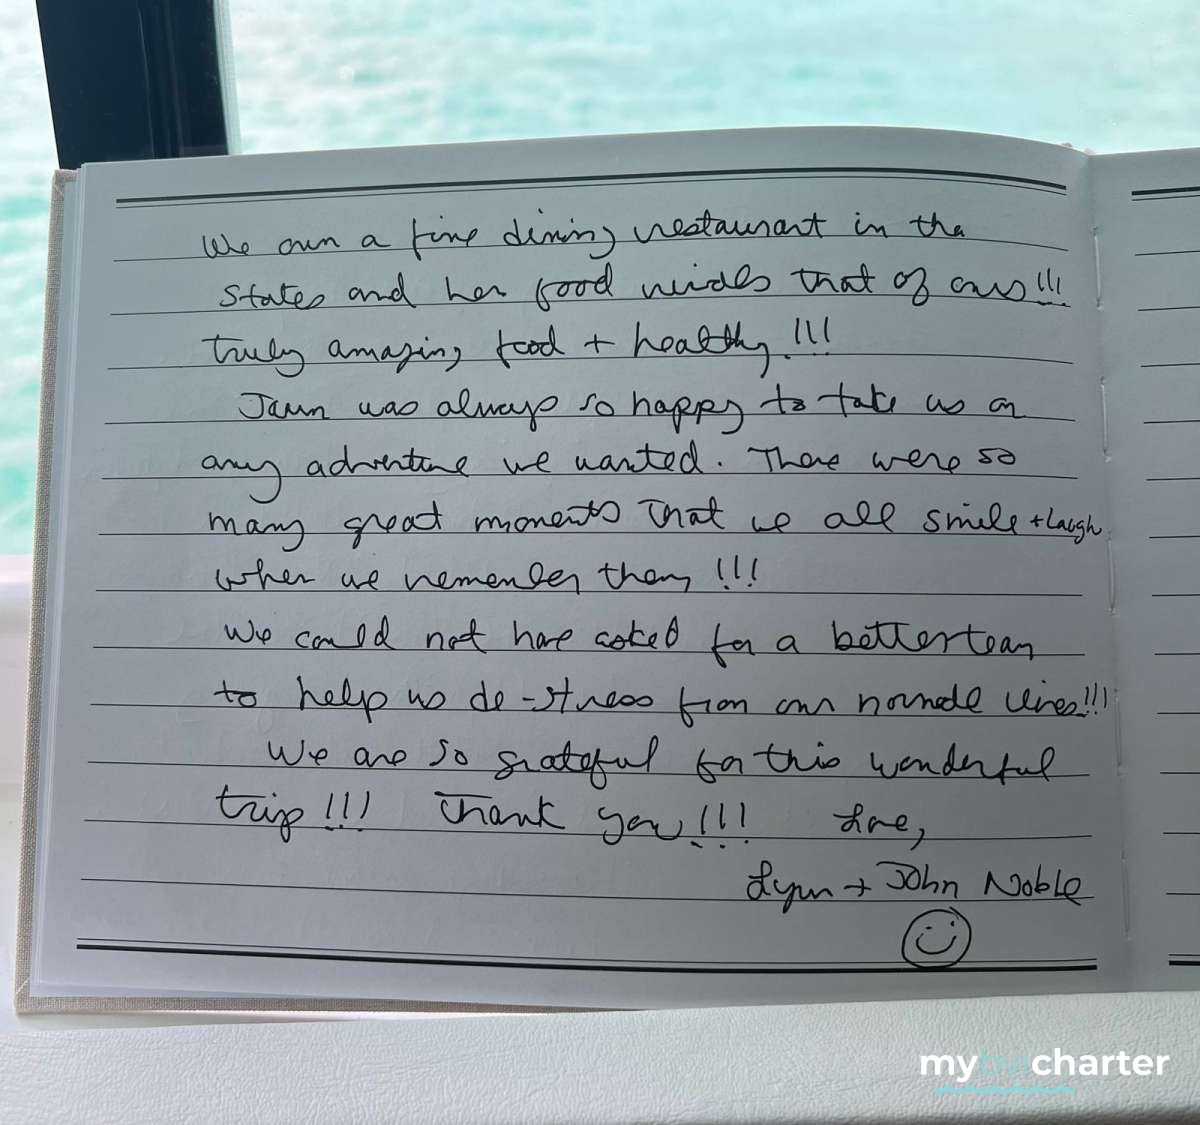 We own a fine dining restaurant in the
States and her food rivals that of ours!!!
truly amazing food + healthy!!!
Jaun was always so happy to take us on
any adventure we wanted. There were so
many great moments that we all smile + Laugh
when we remember them!!!
We could not have asked for a better team
to help us de-stress from our normal lives!!!
We are so grateful for this wonderful
trip!!! Thank you!!! Love,
Lynn + John Noble
mybvicharter